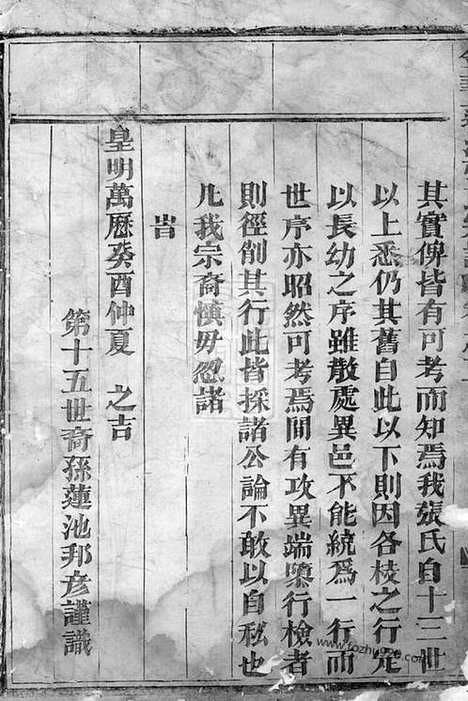 其實俾皆有可考而知焉我張氏自十三世
以上悉仍其舊自此以下則因各枝之行定
以長幼之序雖散處異邑不能統爲一行而
世序亦昭然可考焉間有攻異端隳行檢者
則徑削其行此皆採諸公論不敢以自私也
凡我宗裔愼毋忽諸
旹
皇明萬曆癸酉仲夏 之吉
第十五世裔孫蓮池邦彥謹識
www.tozhu920.com